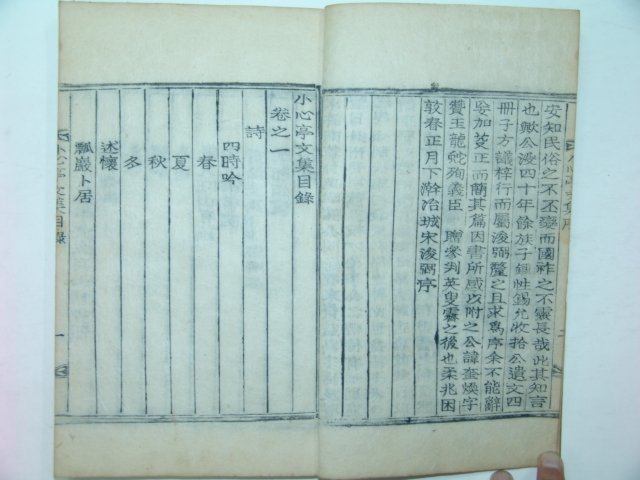 安知民俗之不丕變而國祚之不靈長哉此其知言
也歟公沒四十年餘族子
錫允收拾公遺文四
冊子方議梓行而屬浚弼釐之且求爲序余不能辭
妄加芟正而簡其篇因書所感以附之公諱奎煥字
贊玉龍蛇殉義臣 贈參判英叟霽之後也柔兆困
敦春正月下澣冶城宋浚弼序
小心亭文集序
小心亭文集目錄
卷之一
詩
四時吟
春
夏
秋
冬
述懷
瓢巖卜居
小心亭文集目錄
一